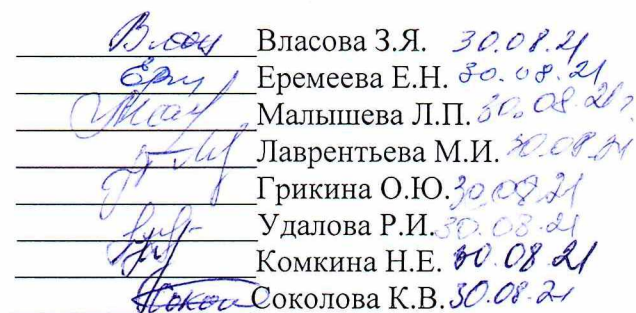 Власова З.Я. 30.08.21
Еремеева Е.Н. 30.08.21
Малышева Л.П. 30.08.21г.
Лаврентьева М.И. 30.08.21
Грикина О.Ю. 30.08.21
Удалова Р.И. 30.08.21
Комкина Н.Е. 30.08.21
Соколова К.В. 30.08.21